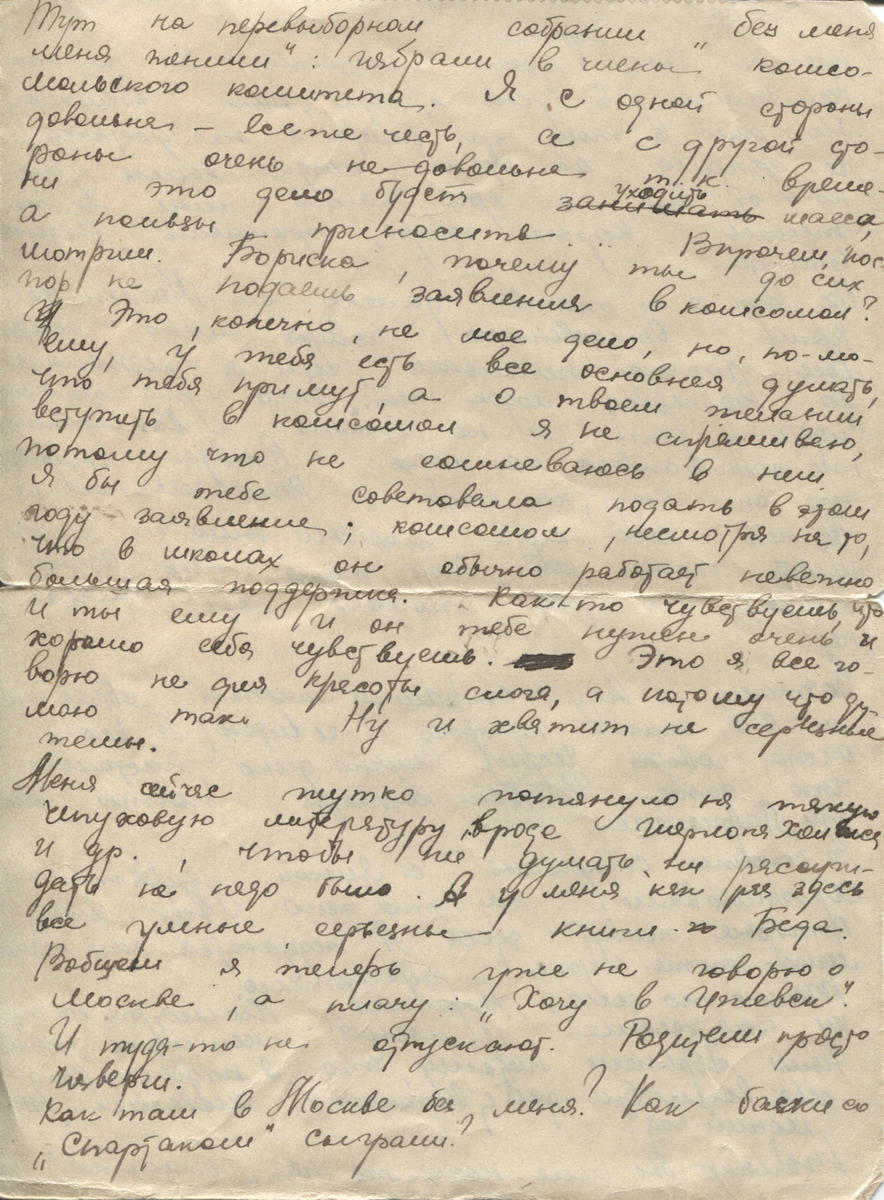 Тут на перевыборном собрании „без меня
меня женили“: избрали в члены комсо-
мольского комитета. Я с одной стороны
довольна – все же честь, а с другой сто-
роны очень не довольна т.к. време-
ни это дело будет уходить масса,
а пользы приносить .. Впрочем, пос-
мотрим. Бориска, почему ты до сих
пор не подаешь заявления в комсомол?
Это, конечно, не мое дело, но, по-мо-
ему, у тебя есть все основная думать,
что тебя примут, а о твоем желании
вступить в комсомол я не спрашиваю,
потому что не сомневаюсь в нем
Я бы тебе советовала подать в этом
году заявление; комсомол, несмотря на то,
что в школах он обычно работает неважно
большая поддержка. Как-то чувствуешь, что
и ты ему и он тебе нужен очень и
хорошо себя чувствуешь. Это я все го-
ворю не для красоты слога, а потому что ду-
маю так. Ну и хватит на серьезные
темы.
Меня сейчас жутко потянуло на всякую
чепуховую литературу, вроде Шерлока Холмса
и др., чтобы ни думать, ни рассуж-
дать не надо было. А у меня как раз здесь
все умные серьезные книги. Беда.
Вобщем я теперь уже не говорю о
Москве, а плачу: „Хочу в Ижевск“.
И туда-то не отпускают. Родители просто
изверги.
Как там в Москве без меня? Как баски со
„Спартаком“ сыграли?